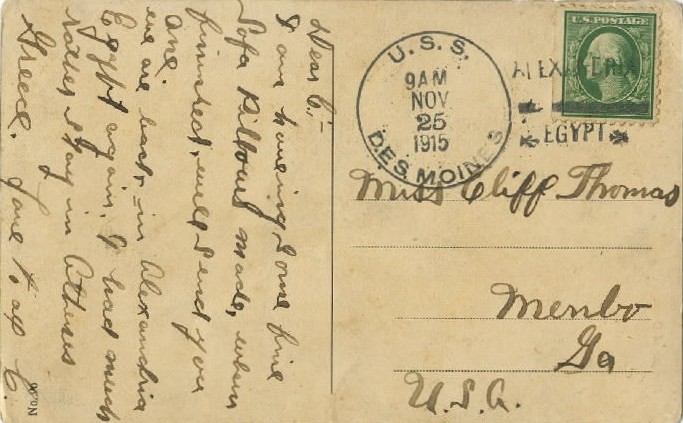 Dear C:-
I am having some fine
Sofa Pillows made, when
finished, will send you
one.
we are back in Alexandria
Egypt again, I had much
rather stay in Athens
Greece. Love to all C.
No. 36
U.S. POSTAGE
U.S.S.
9AM
NOV
25
1915
DES MOINES
ALEXANDRIA
EGYPT
Miss Cliff Thomas
Menlo
Ga
U.S.A.